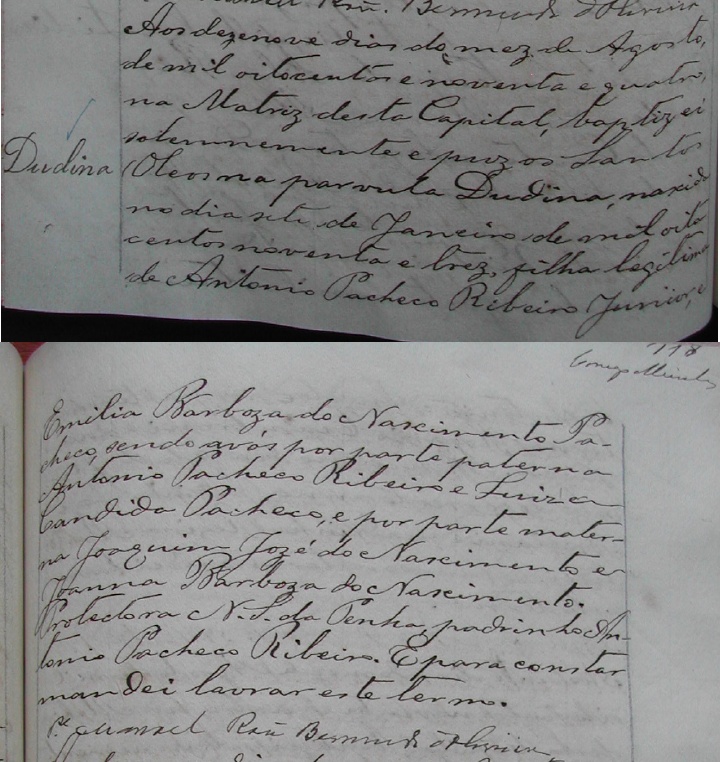 Manoel Raũ. Bermude d'Oliveira
Aos dezenove dias do mez de Agosto,
de mil oitocentos e noventa e quatro,
na Matriz desta Capital, baptizei
solemnemente e puz os Santos
Dudina
Oleos na parvula Dudina, nascida
no dia sete de Janeiro de mil oito
centos noventa e trez, filha legitima
de Antonio Pacheco Ribeiro Junior, e
118
Emilia Barboza do Nascimento Pa-
checo, sendo avós por parte paterna
Antonio Pacheco Ribeiro e Luiza
Candida Pacheco, e por parte mater-
na Joaquim Jozé do Nascimento e
Joanna Barboza do Nascimento.
Protectora N. S. da Penha, padrinho An-
tonio Pacheco Ribeiro. E para constar
mandei lavrar este termo.
Pe. Manoel Raũ Bermude d'Oliveira